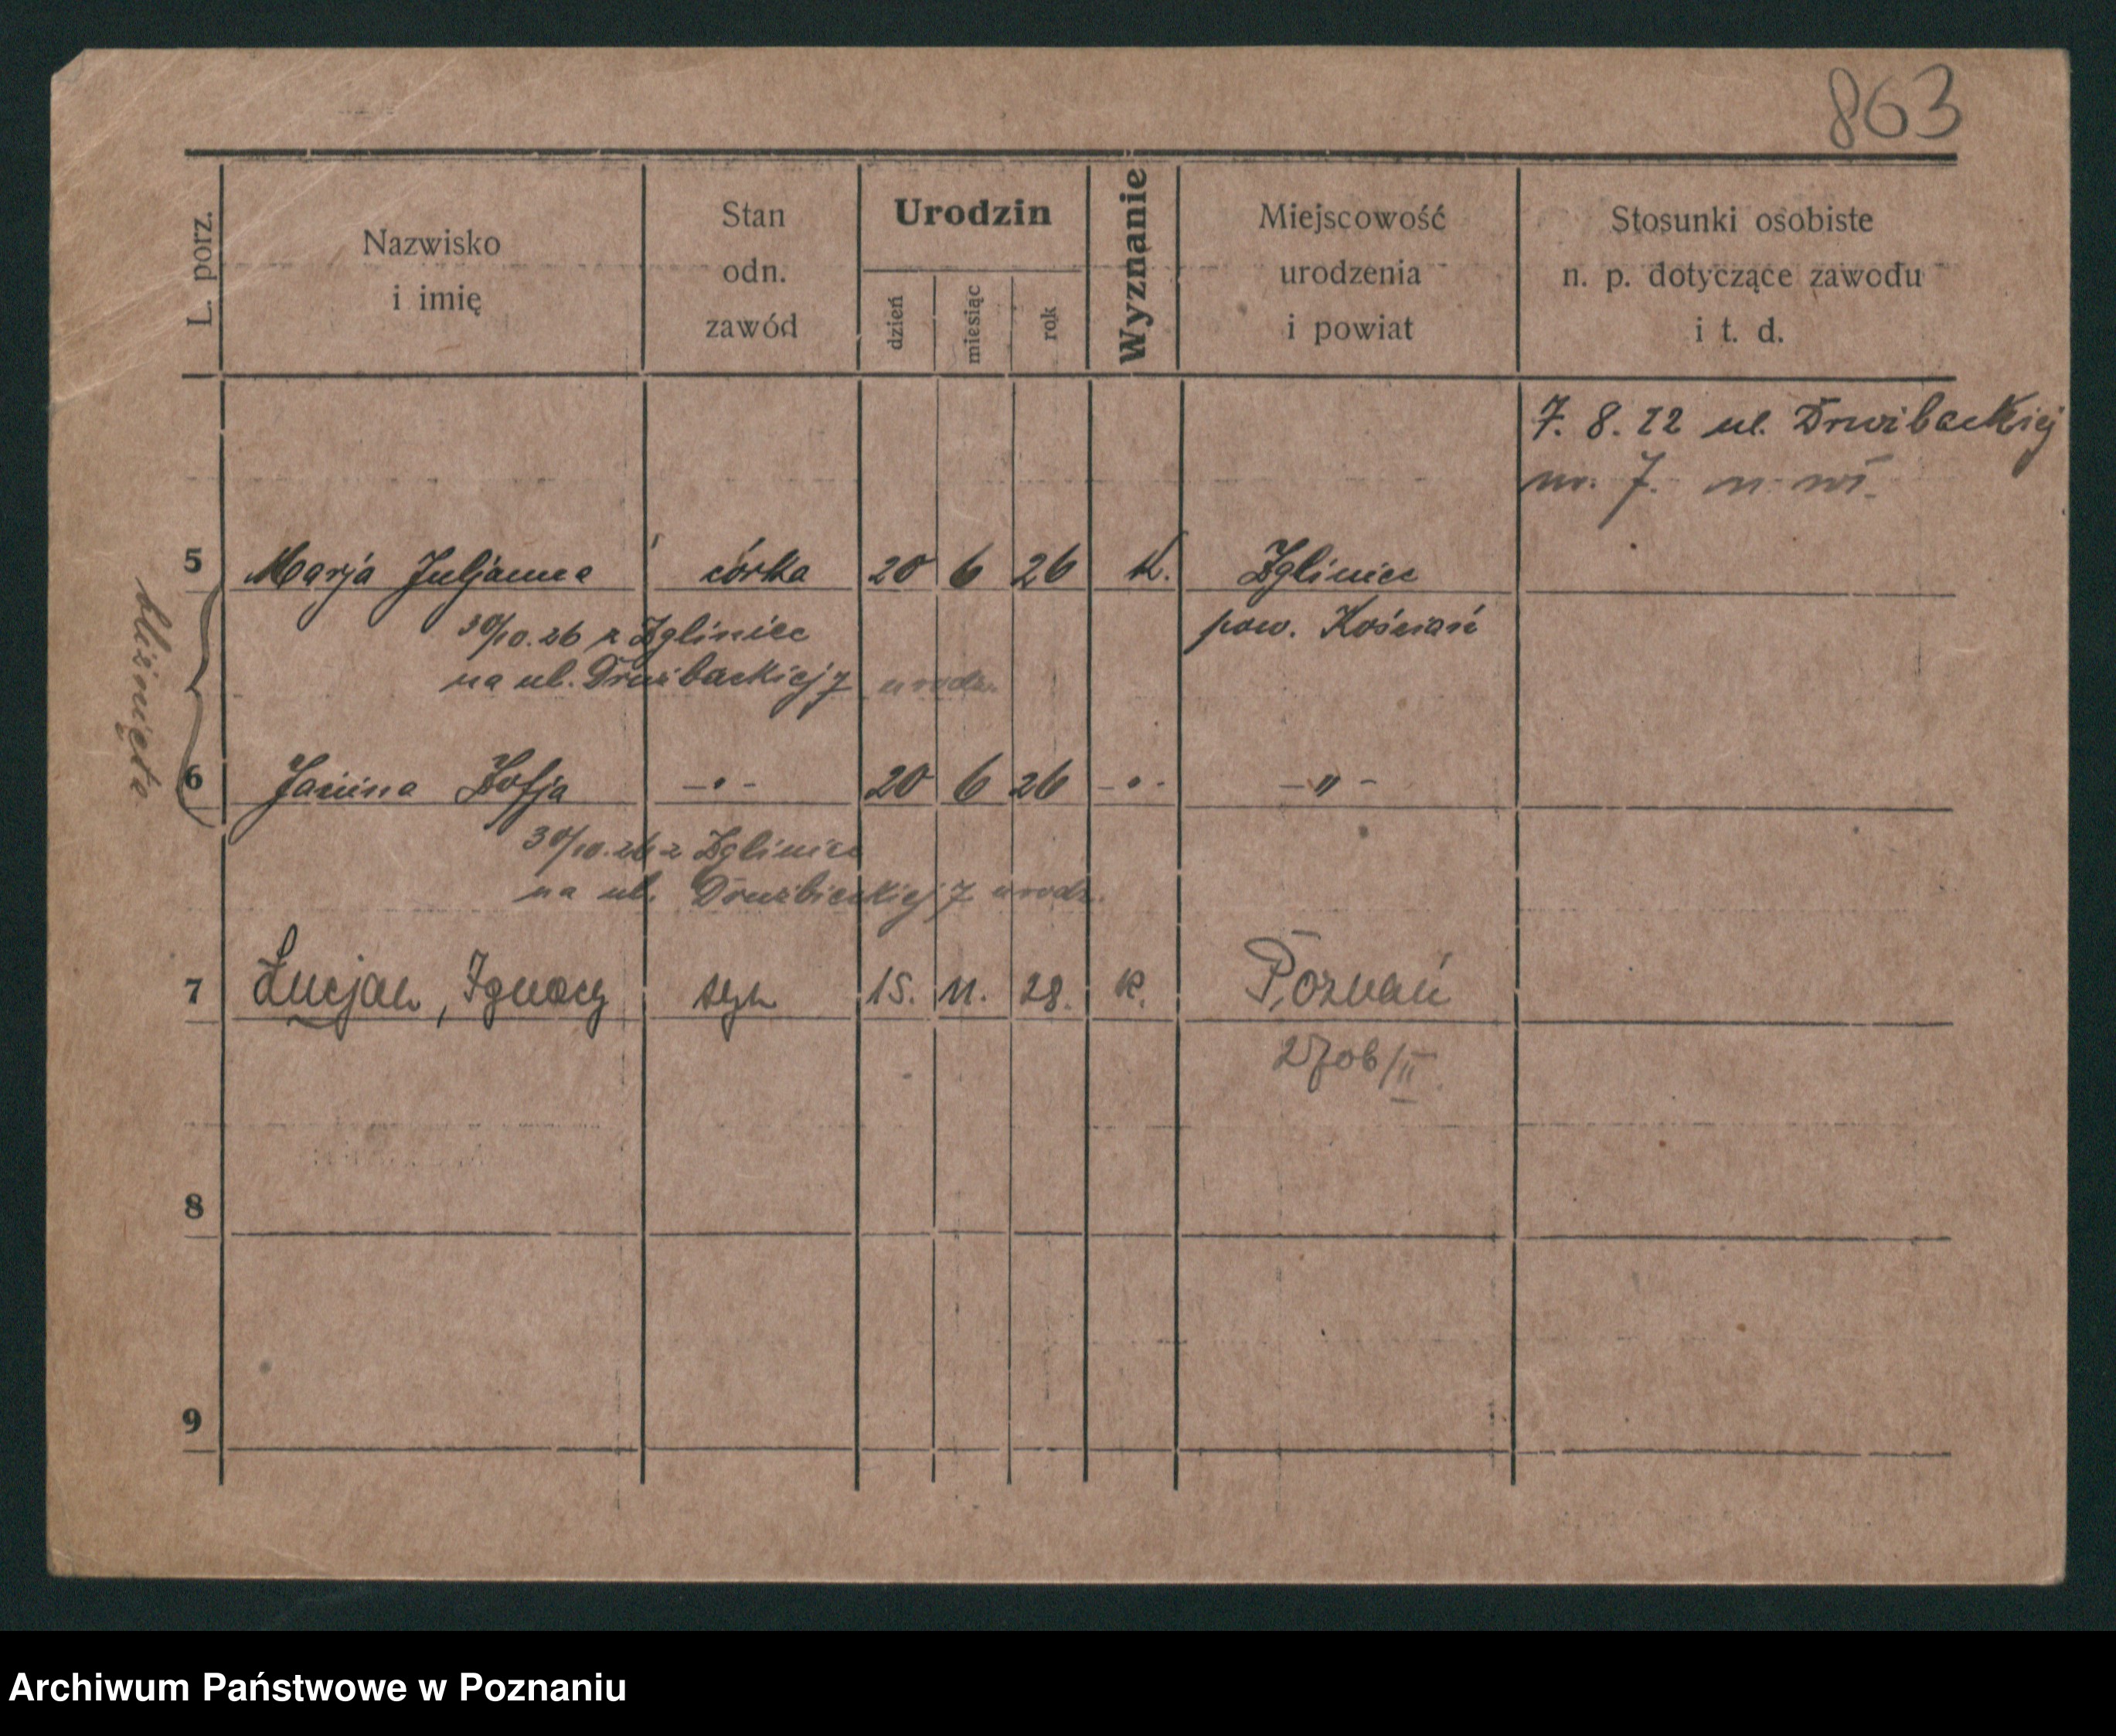 863
L. porz.
Nazwisko
i imię
Stan
odn.
zawód
Urodzin
dzień
miesiąc
rok
Wyznanie
Miejscowość
urodzenia
i powiat
Stosunki osobiste
n. p. dotyczące zawodu
i t. d.
7. 8. 22 ul. Drużbackiej
nr. 7.
5 Marja Juljanna córka 20 6 26 K. Zgliniec
30/10.26 z Zgliniec pow. Kościań
na ul. Drużbackiej 7 urodz.
bliźnięta
6 Janina Zofja -"- 20 6 26 -"- -"-
30/10.26 z Zgliniec
na ul. Drużbickiej 7 urodz.
7 Łucjan, Ignacy syn 15. 11. 28. K. Poznań
2706/II.
8
9
Archiwum Państwowe w Poznaniu